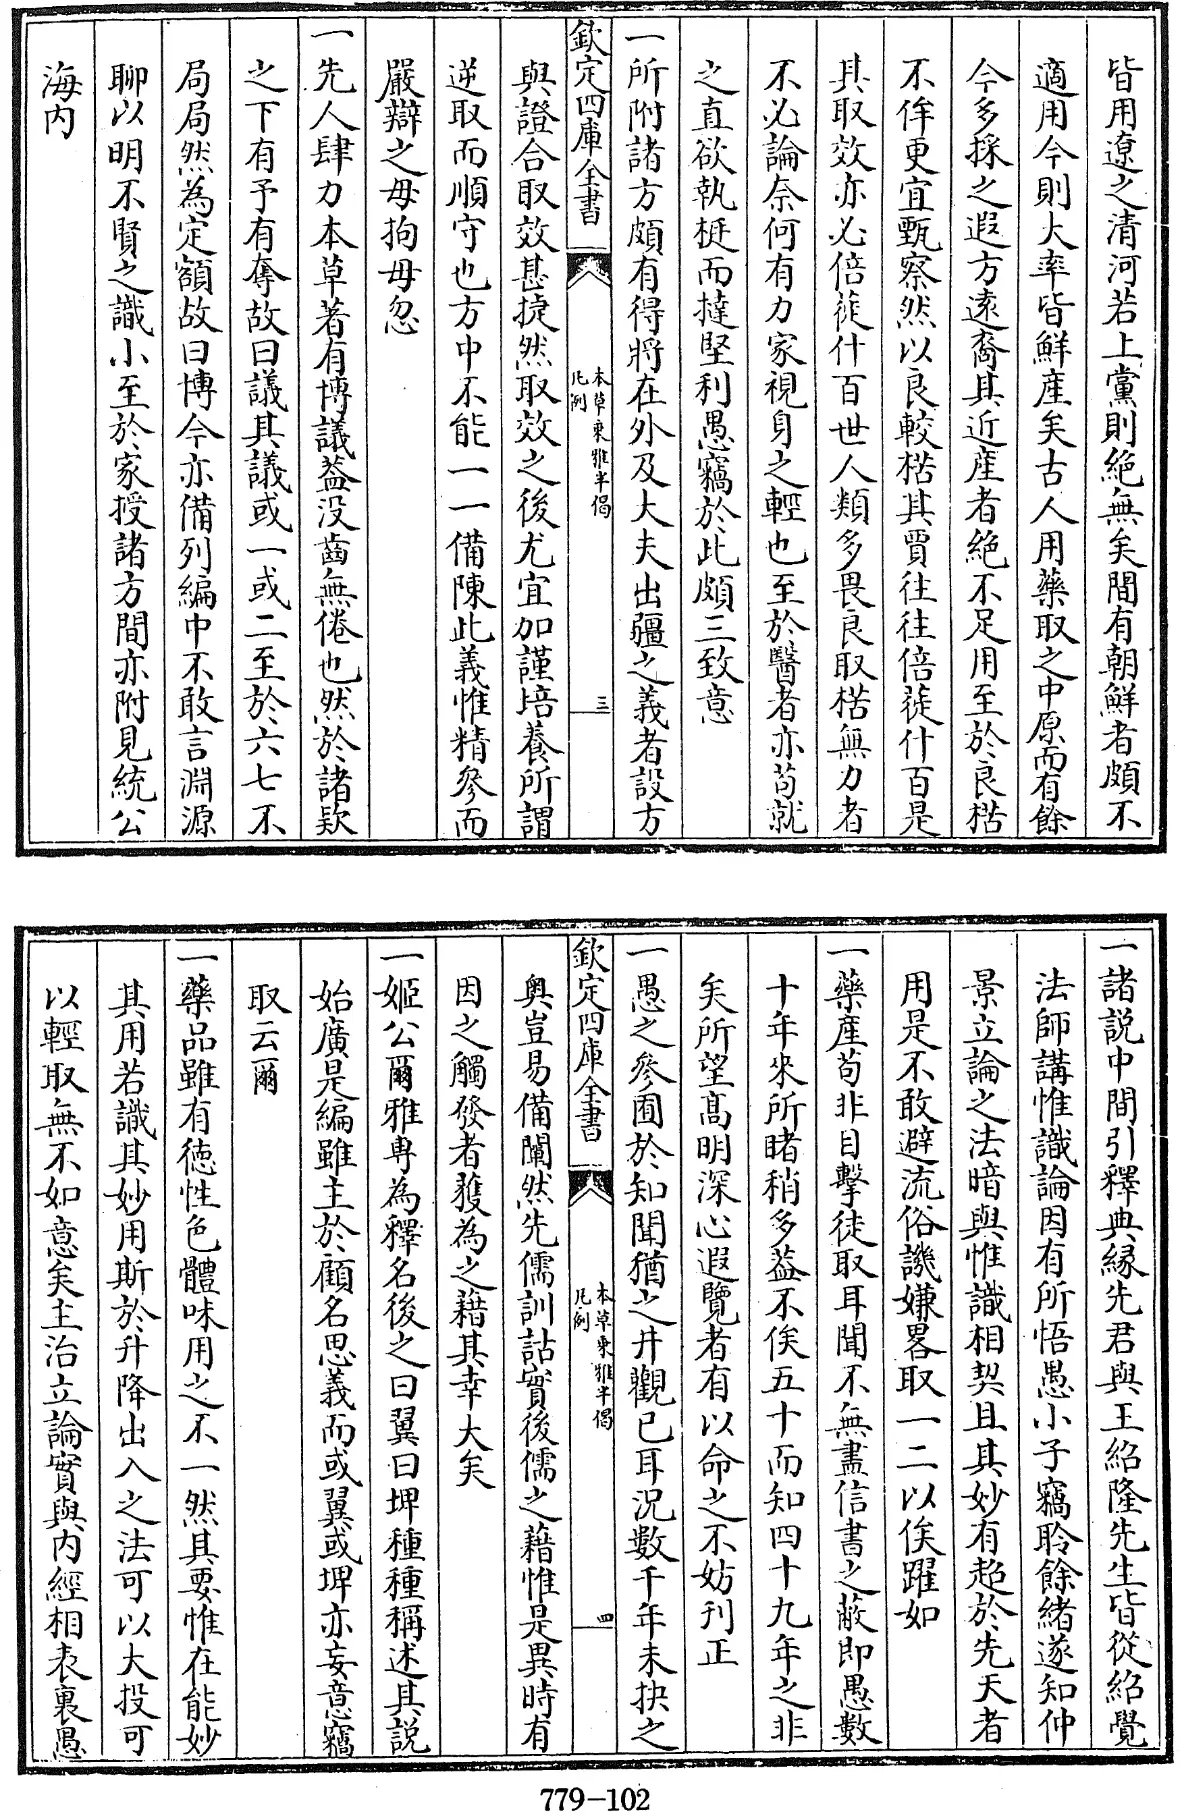 皆用遼之清河若上黨則絶無矣間有朝鮮者頗不
適用今則大率皆鮮産矣古人用藥取之中原而有餘
今多採之遐方遠裔其近産者絶不足用至於良楛
不侔更宜甄察然以良較楛其賈往往倍蓰什百是
其取效亦必倍蓰什百世人類多畏良取楛無力者
不必論奈何有力家視身之輕也至於醫者亦苟就
之直欲執梃而撻堅利愚竊於此頗三致意
一所附諸方頗有得將在外及大夫出疆之義者設方
欽定四庫全書
本草乗雅半偈
凡例
三
與證合取效甚捷然取效之後尤宜加謹培養所謂
逆取而順守也方中不能一一備陳此義惟精參而
嚴辯之毋拘毋忽
一先人肆力本草著有博議葢没齒無倦也然於諸欵
之下有予有奪故曰議其議或一或二至於六七不
局局然為定額故曰博今亦備列編中不敢言淵源
聊以明不賢之識小至於家授諸方間亦附見統公
海内
一諸説中間引釋典縁先君與王紹隆先生皆從紹覺
法師講惟識論因有所悟愚小子竊聆餘緒遂知仲
景立論之法暗與惟識相契且其妙有超於先天者
用是不敢避流俗譏嫌畧取一二以俟躍如
一藥産茍非目擊徒取耳聞不無盡信書之蔽即愚數
十年來所睹稍多葢不俟五十而知四十九年之非
矣所望髙明深心遐覽者有以命之不妨刋正
一愚之參囿於知聞猶之井觀已耳況數千年未抉之
欽定四庫全書
本草乗雅半偈
凡例
四
奥豈易備闡然先儒訓詁實後儒之藉惟是異時有
因之觸發者獲為之藉其幸大矣
一姬公爾雅専為釋名後之曰翼曰埤種種稱述其説
始廣是編雖主於顧名思義而或翼或埤亦妄意竊
取云爾
一藥品雖有徳性色體味用之不一然其要惟在能妙
其用若識其妙用斯於升降出入之法可以大投可
以輕取無不如意矣主治立論實與内經相表裏愚
779-102